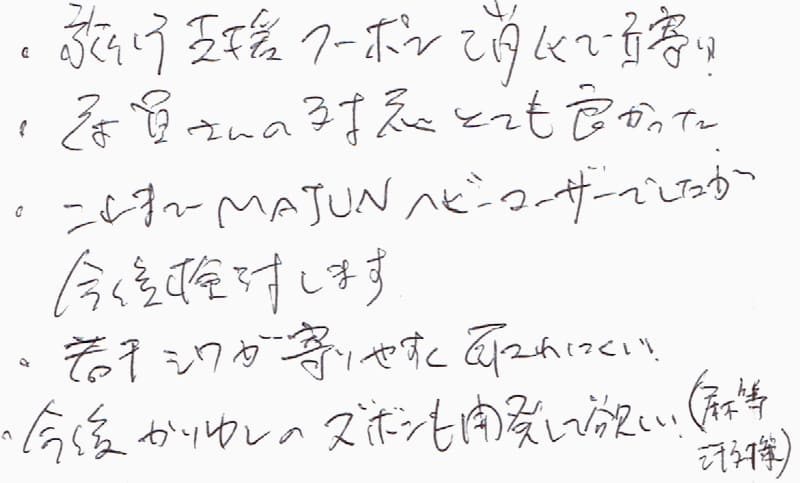 ・旅行支援クーポンで消化で立寄り
・店員さんの対応とても良かった
・これまでMAJUNヘビーユーザーでしたが
今後検討します
・若干シワが寄りやすく取れにくい
・今後かりゆしのズボンも開発して欲しい(麻等
汗対策)